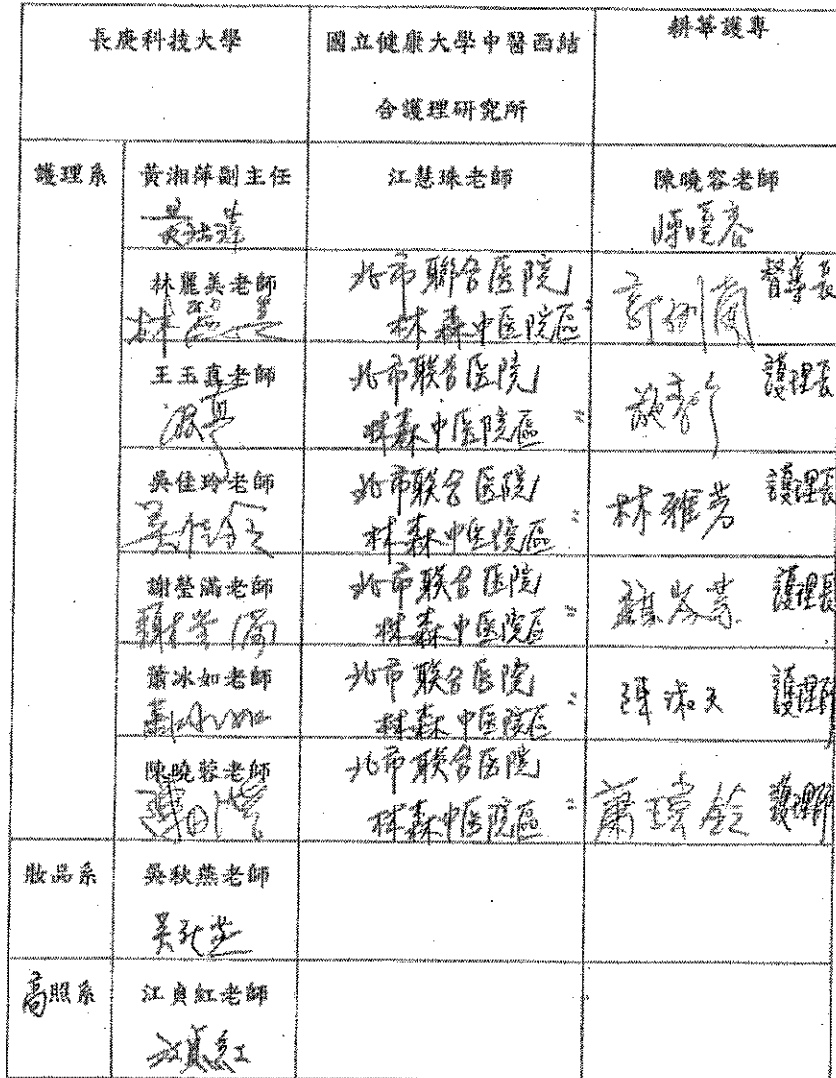 長庚科技大學
國立健康大學中醫西結
合護理研究所
耕莘護專
護理系
黃湘萍副主任
江慧珠老師
陳曉容老師
陳曉容
林麗美老師
林麗美
北市聯合医院
林森中医院區
督導長
王玉真老師
北市联合医院
林森中医院區
護理長
吳佳玲老師
吳佳玲
北市联合医院
林森中医院區
林雅芳
護理長
謝瑩滿老師
北市联合医院
林森中医院區
護理長
蕭冰如老師
蕭冰如
北市联合医院
林森中医院區
護理師
陳曉蓉老師
北市联合医院
林森中医院區
護理師
妝品系
吳秋燕老師
吳秋燕
高照系
江貞紅老師
江貞紅